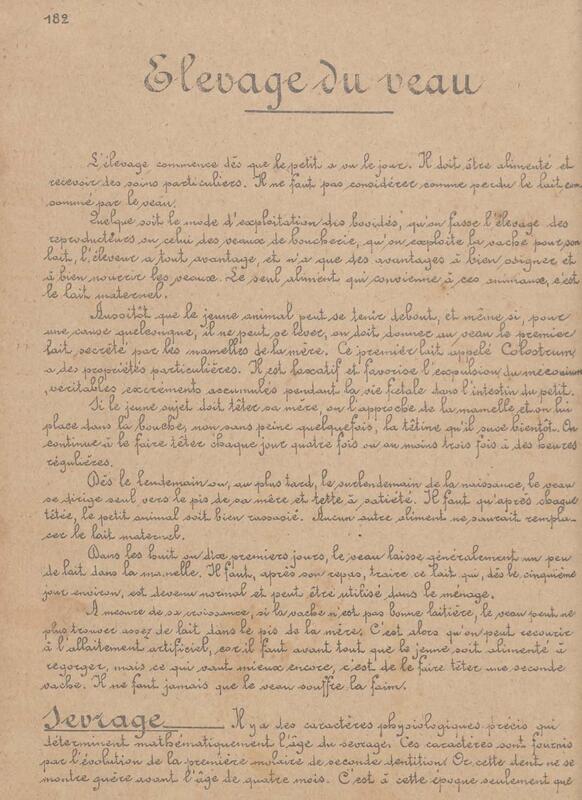 182
Elevage du veau
L'élevage commence dès que le petit a vu le jour. Il doit être alimenté et
recevoir des soins particuliers. Il ne faut pas considérer comme perdu le lait con
sommé par le veau.
Quelque soit le mode d'exploitation des bovidés, qu'on fasse l'élevage des
reproducteurs ou celui des veaux de boucherie, qu'on exploite la vache pour son
lait, l'éleveur a tout avantage, et n'a que des avantages à bien soigner et
à bien nourrir les veaux. Le seul aliment qui convienne à ces animaux, c'est
le lait maternel.
Aussitôt que le jeune animal peut se tenir debout, et même si, pour
une cause quelconque, il ne peut se lever, on doit donner au veau le premier
lait secrété par les mamelles de la mère. Ce premier lait appelé Colostrum
a des propriétés particulières. Il est laxatif et favorise l'expulsion du méconium
, véritables excréments accumulés pendant la vie fœtale dans l'intestin du petit.
Si le jeune sujet doit têter sa mère, on l'approche de la mamelle et on lui
place dans la bouche, non sans peine quelquefois, la têtine qu'il suce bientôt. On
continue à le faire têter chaque jour quatre fois ou au moins trois fois à des heures
régulières.
Dès le lendemain ou, au plus tard, le surlendemain de la naissance, le veau
se dirige seul vers le pis de sa mère et tette à satiété. Il faut qu'après chaque
têtée, le petit animal soit bien rassasié. Aucun autre aliment ne saurait rempla-
cer le lait maternel.
Dans les huit ou dix premiers jours, le veau laisse généralement un peu
de lait dans la mamelle. Il faut, après son repas, traire ce lait qui, dès le cinquième
jour environ, est devenu normal et peut être utilisé dans le ménage.
A mesure de sa croissance, si la vache n'est pas bonne laitière, le veau peut ne
plus trouver assez de lait dans le pis de la mère. C'est alors qu'on peut recourir
à l'allaitement artificiel, car il faut avant tout que le jeune soit alimenté à
regorger, mais ce qui vaut mieux encore, c'est de le faire têter une seconde
vache. Il ne faut jamais que le veau souffre la faim.
Sevrage Il y a des caractères physiologiques précis qui
déterminent mathématiquement l'âge du sevrage. Ces caractères sont fournis
par l'évolution de la première molaire de seconde dentition. Or, cette dent ne se
montre guère avant l'âge de quatre mois. C'est à cette époque seulement que